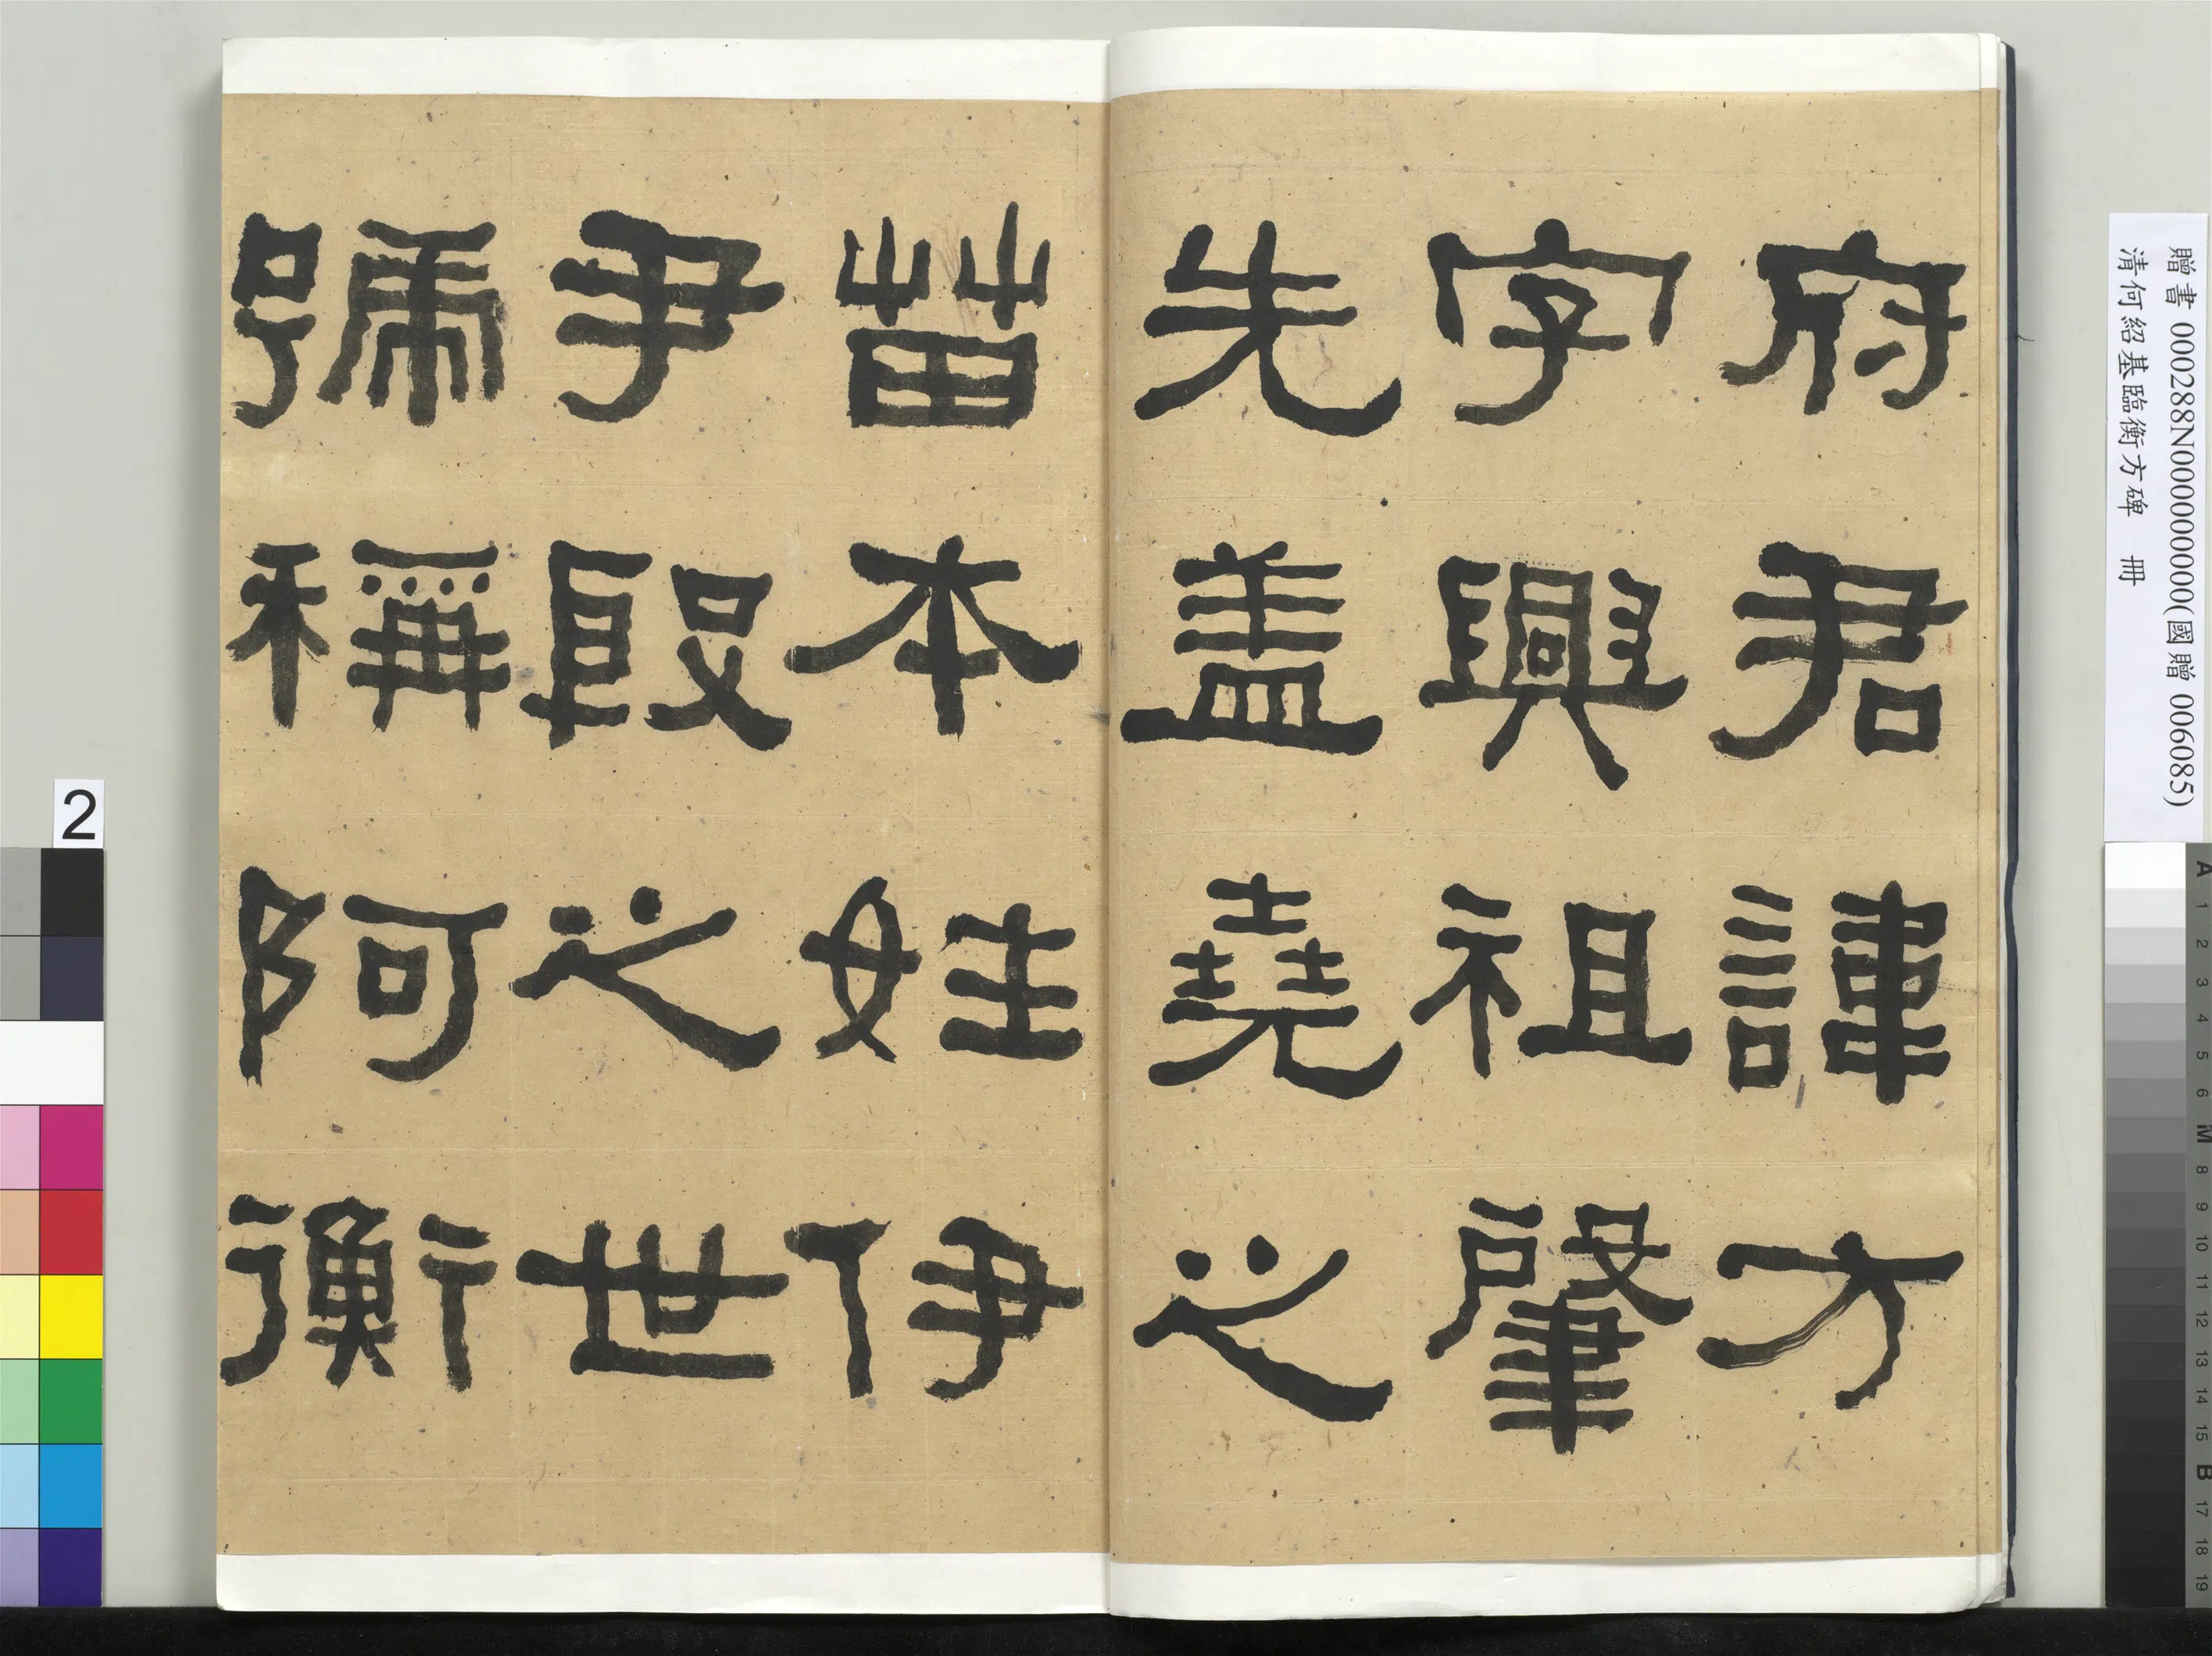 府君諱方
字興祖肇
先盖堯之
苗本姓伊
尹殷之世
號稱阿衡
贈書 000288N000000000(國贈 006085)
清何紹基臨衡方碑 冊
2
A 1 2 3 4 5 6 M 8 9 10 11 12 13 14 15 B 17 18 19